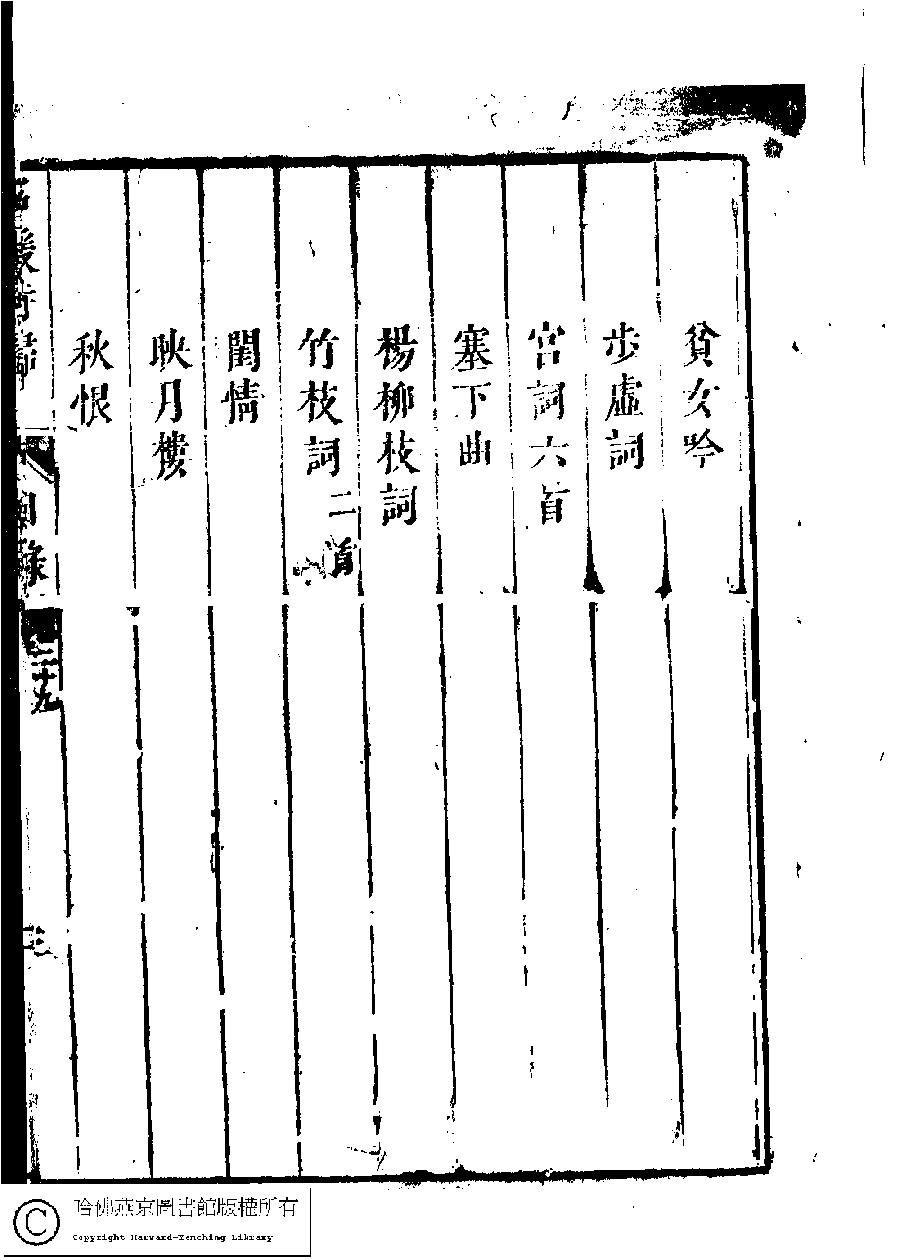 貧女吟
步虛詞
宮詞六首
塞下曲
楊柳枝詞
竹枝詞二首
閨情
映月樓
秋恨
名媛詩歸
目錄
三十九
哈佛燕京圖書館版權所有
Copyright Harvard-Yenching Library